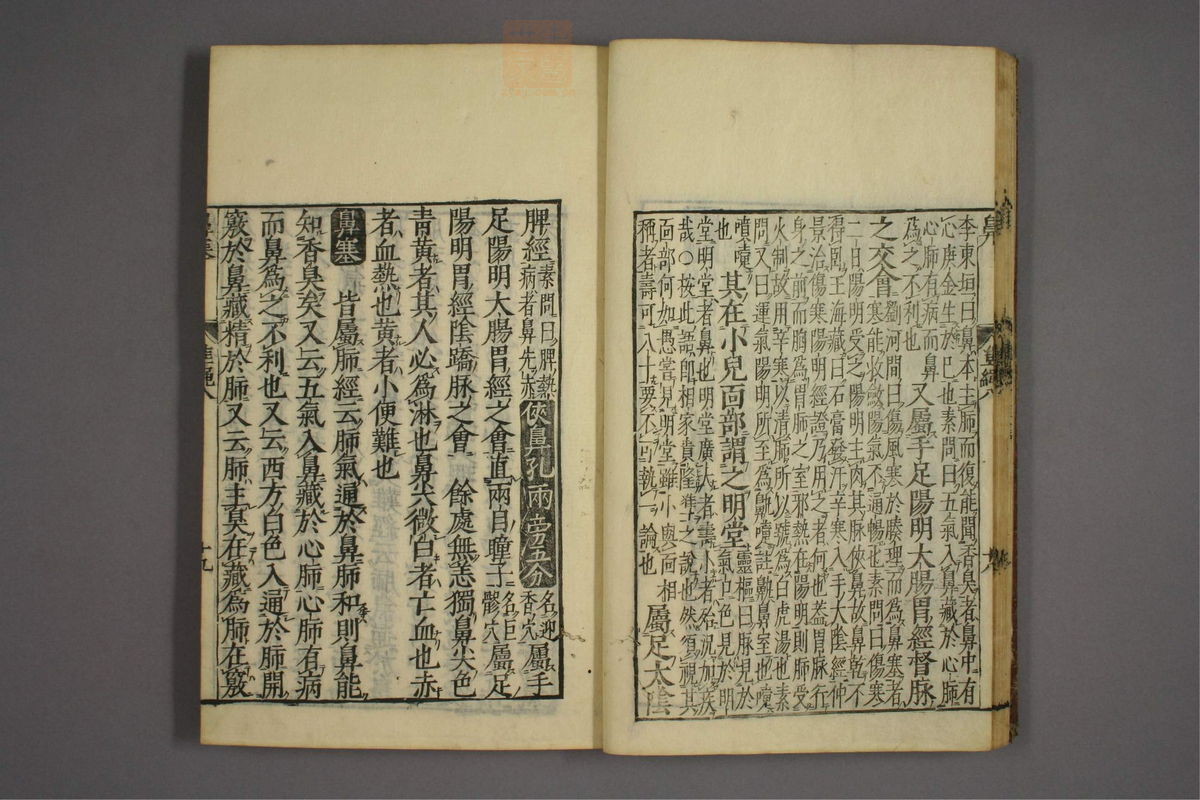 李東垣曰鼻本主肺而復能聞香臭者鼻中有
心庚金生於巳也素問曰五氣入鼻藏於心肺
心肺有病而鼻
為之不利也
又屬手足陽明大腸胃經督脉
之交會
劉河間曰傷風寒於腠理而為鼻塞者
寒能收斂陽氣不通暢也素問曰傷寒
二日陽明受之陽明主肉其脉俠鼻故鼻乾不
得臥王海藏曰石膏發汗辛寒入手太陰經仲
景治傷寒陽明經證乃用之者何也蓋胃脉行
身之前而胸為胃肺之室邪熱在陽明則肺受
火制故用辛寒以清肺所以號為白虎湯也素
問又曰運氣陽明所至為鼽嚏註鼽鼻窒也嚏
噴嚏
也
其在小兒面部謂之明堂
靈樞曰脉見於
氣口色見於明
堂明堂者鼻也明堂廣大者壽小者殆況加疾
哉〇按此語即相家貴隆準之說也然須視其
面部何如愚嘗見明堂雖小與面相
稱者壽可八十要不可執一論也
屬足太陰
脾經
素問曰脾熱
病者鼻先赤
俠鼻孔兩旁五分
名迎
香穴
屬手
足陽明大腸胃經之會直兩目瞳子
名巨
髎穴
屬足
陽明胃經陰蹻脉之會
餘處無恙獨鼻尖色
青黃者其人必為淋也鼻尖微白者亡血也赤
者血熱也黃者小便難也
鼻塞
皆屬肺經云肺氣通於鼻肺和則鼻能
知香臭矣又云五氣入鼻藏於心肺心肺有病
而鼻為之不利也又云西方白色入通於肺開
竅於鼻藏精於肺又云肺主鼻在藏為肺在竅